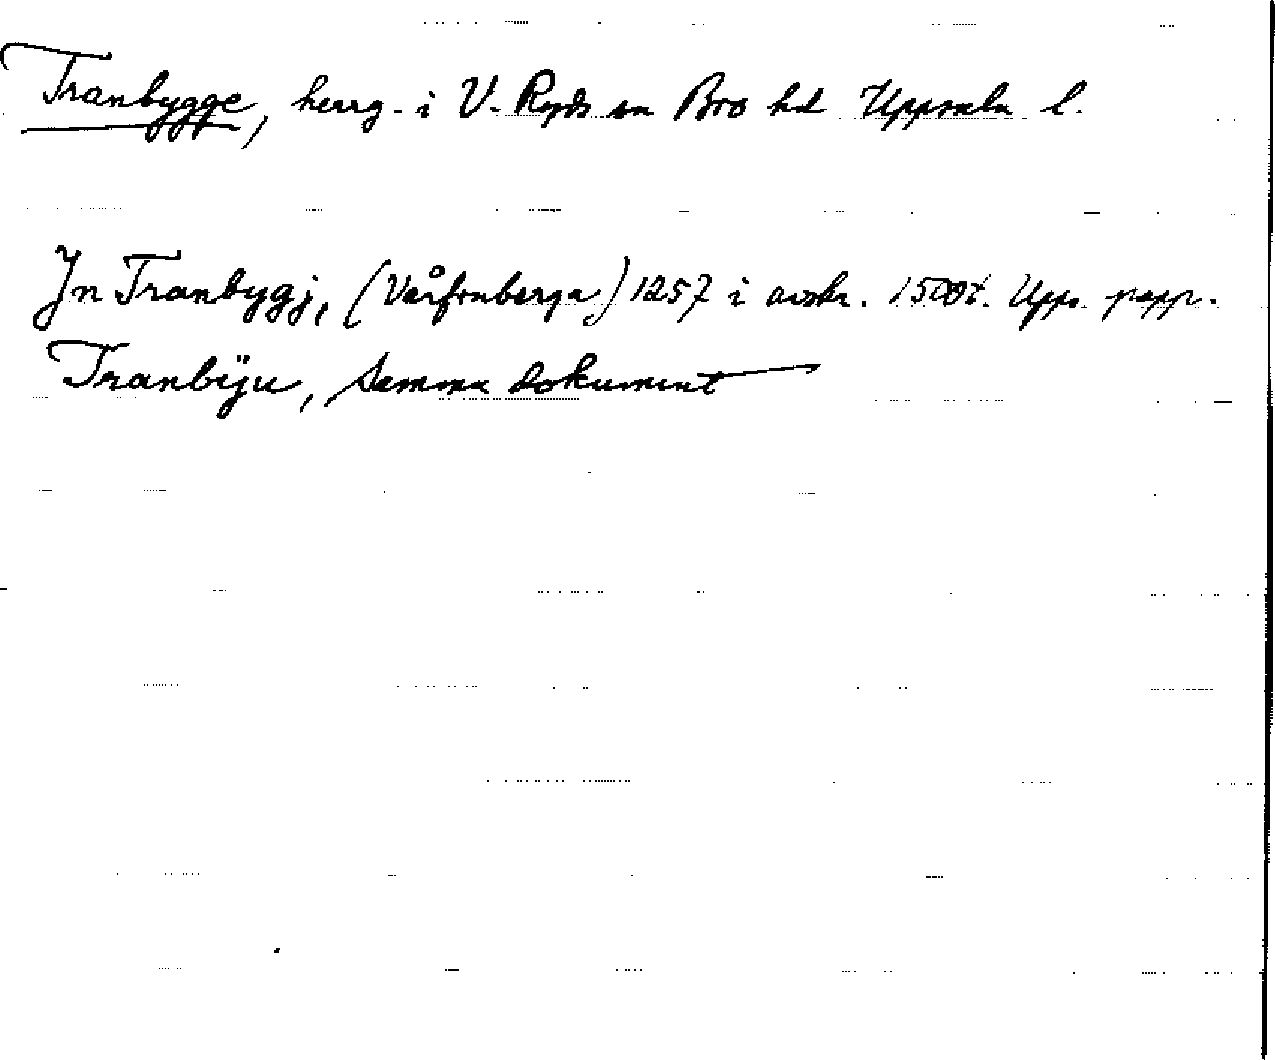 Tranbygge, herrg. i V. Ryds sn Bro hd Uppsala l.
Jn Tranbygj, (Vårfruberga) 1257 i avskr. 1500t. Upps. papp.
Tranbÿu, samma dokument